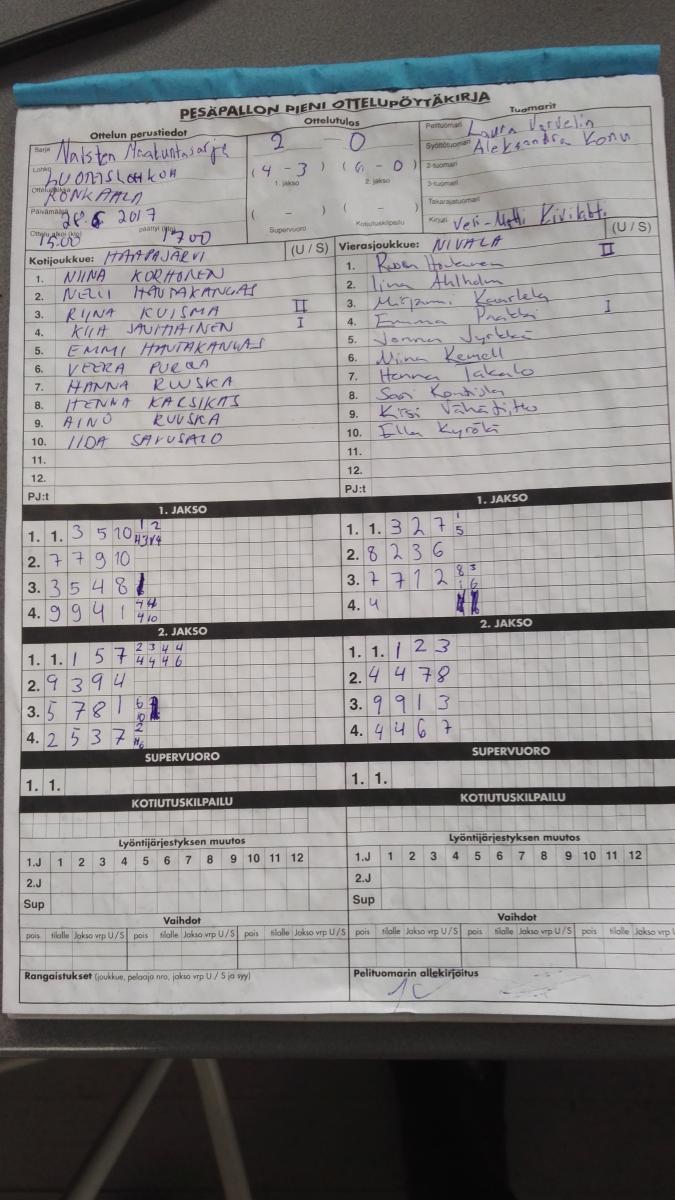 PESÄPALLON PIENI OTTELUPÖYTÄKIRJA
Ottelun perustiedot
Ottelutulos
Tuomarit
Sarja Naisten Maakuntasarja
Lohko SUOMISLOHKO
Ottelupaikka RONKAALA
Päivämäärä 28.6 2017
Ottelu alkoi (klo) 15.00 päättyi (klo) 1700
2 - 0
(4 - 3) (6 - 0)
1. jakso 2. jakso
( - ) ( - )
Supervuoro Kotiutuskilpailu
Pelituomari Laura
Syöttötuomari Aleksandra Konu
2-tuomari
3-tuomari
Takarajatuomari
Kirjuri Veli-Matti
Kotijoukkue: HAAPAJÄRVI (U / S)
1. NIINA KORHONEN
2. NELLI HAUTAKANGAS
3. RIINA KUISMA II
4. KIIA JAUHIAINEN I
5. EMMI HAUTAKANGAS
6. VEERA PUROLA
7. HANNA RUUSKA
8. HENNA KALSIKAS
9. AINO RUUSKA
10. IIDA SAVUSALO
11.
12.
PJ:t
Vierasjoukkue: NIVALA (U / S)
1. II
2. Iina Ahlholm
3. Mirjami Kaarlela
4. Emma I
5. Jonna Jyrkkä
6. Miina Kemell
7. Henna Jakalo
8. Sari
9. Kirsi Vähätiitto
10. Ella Kyrölä
11.
12.
PJ:t
1. JAKSO
1. 1. 3 5 10 1 2
2. 7 7 9 10
3. 3 5 4 8
4. 9 9 4 1 4 4 4 10
2. JAKSO
1. 1. 1 5 7 2 3 4 4 4 4 4 6
2. 9 3 9 4
3. 5 7 8 1 6 10
4. 2 5 3 7 2
SUPERVUORO
1. 1.
KOTIUTUSKILPAILU
1. JAKSO
1. 1. 3 2 7 1 5
2. 8 2 3 6
3. 7 7 1 2 8 3 1 6
4. 4
2. JAKSO
1. 1. 1 2 3
2. 4 4 7 8
3. 9 9 1 3
4. 4 4 6 7
SUPERVUORO
1. 1.
KOTIUTUSKILPAILU
Lyöntijärjestyksen muutos
1.J 1 2 3 4 5 6 7 8 9 10 11 12
2.J
Sup
Vaihdot
pois tilalle Jakso vrp U / S pois tilalle Jakso vrp U / S pois tilalle Jakso vrp U / S
Rangaistukset (joukkue, pelaaja nro, jakso vrp U / S ja syy)
Lyöntijärjestyksen muutos
1.J 1 2 3 4 5 6 7 8 9 10 11 12
2.J
Sup
Vaihdot
pois tilalle Jakso vrp U / S pois tilalle Jakso vrp U / S pois tilalle Jakso vrp U
Pelituomarin allekirjoitus